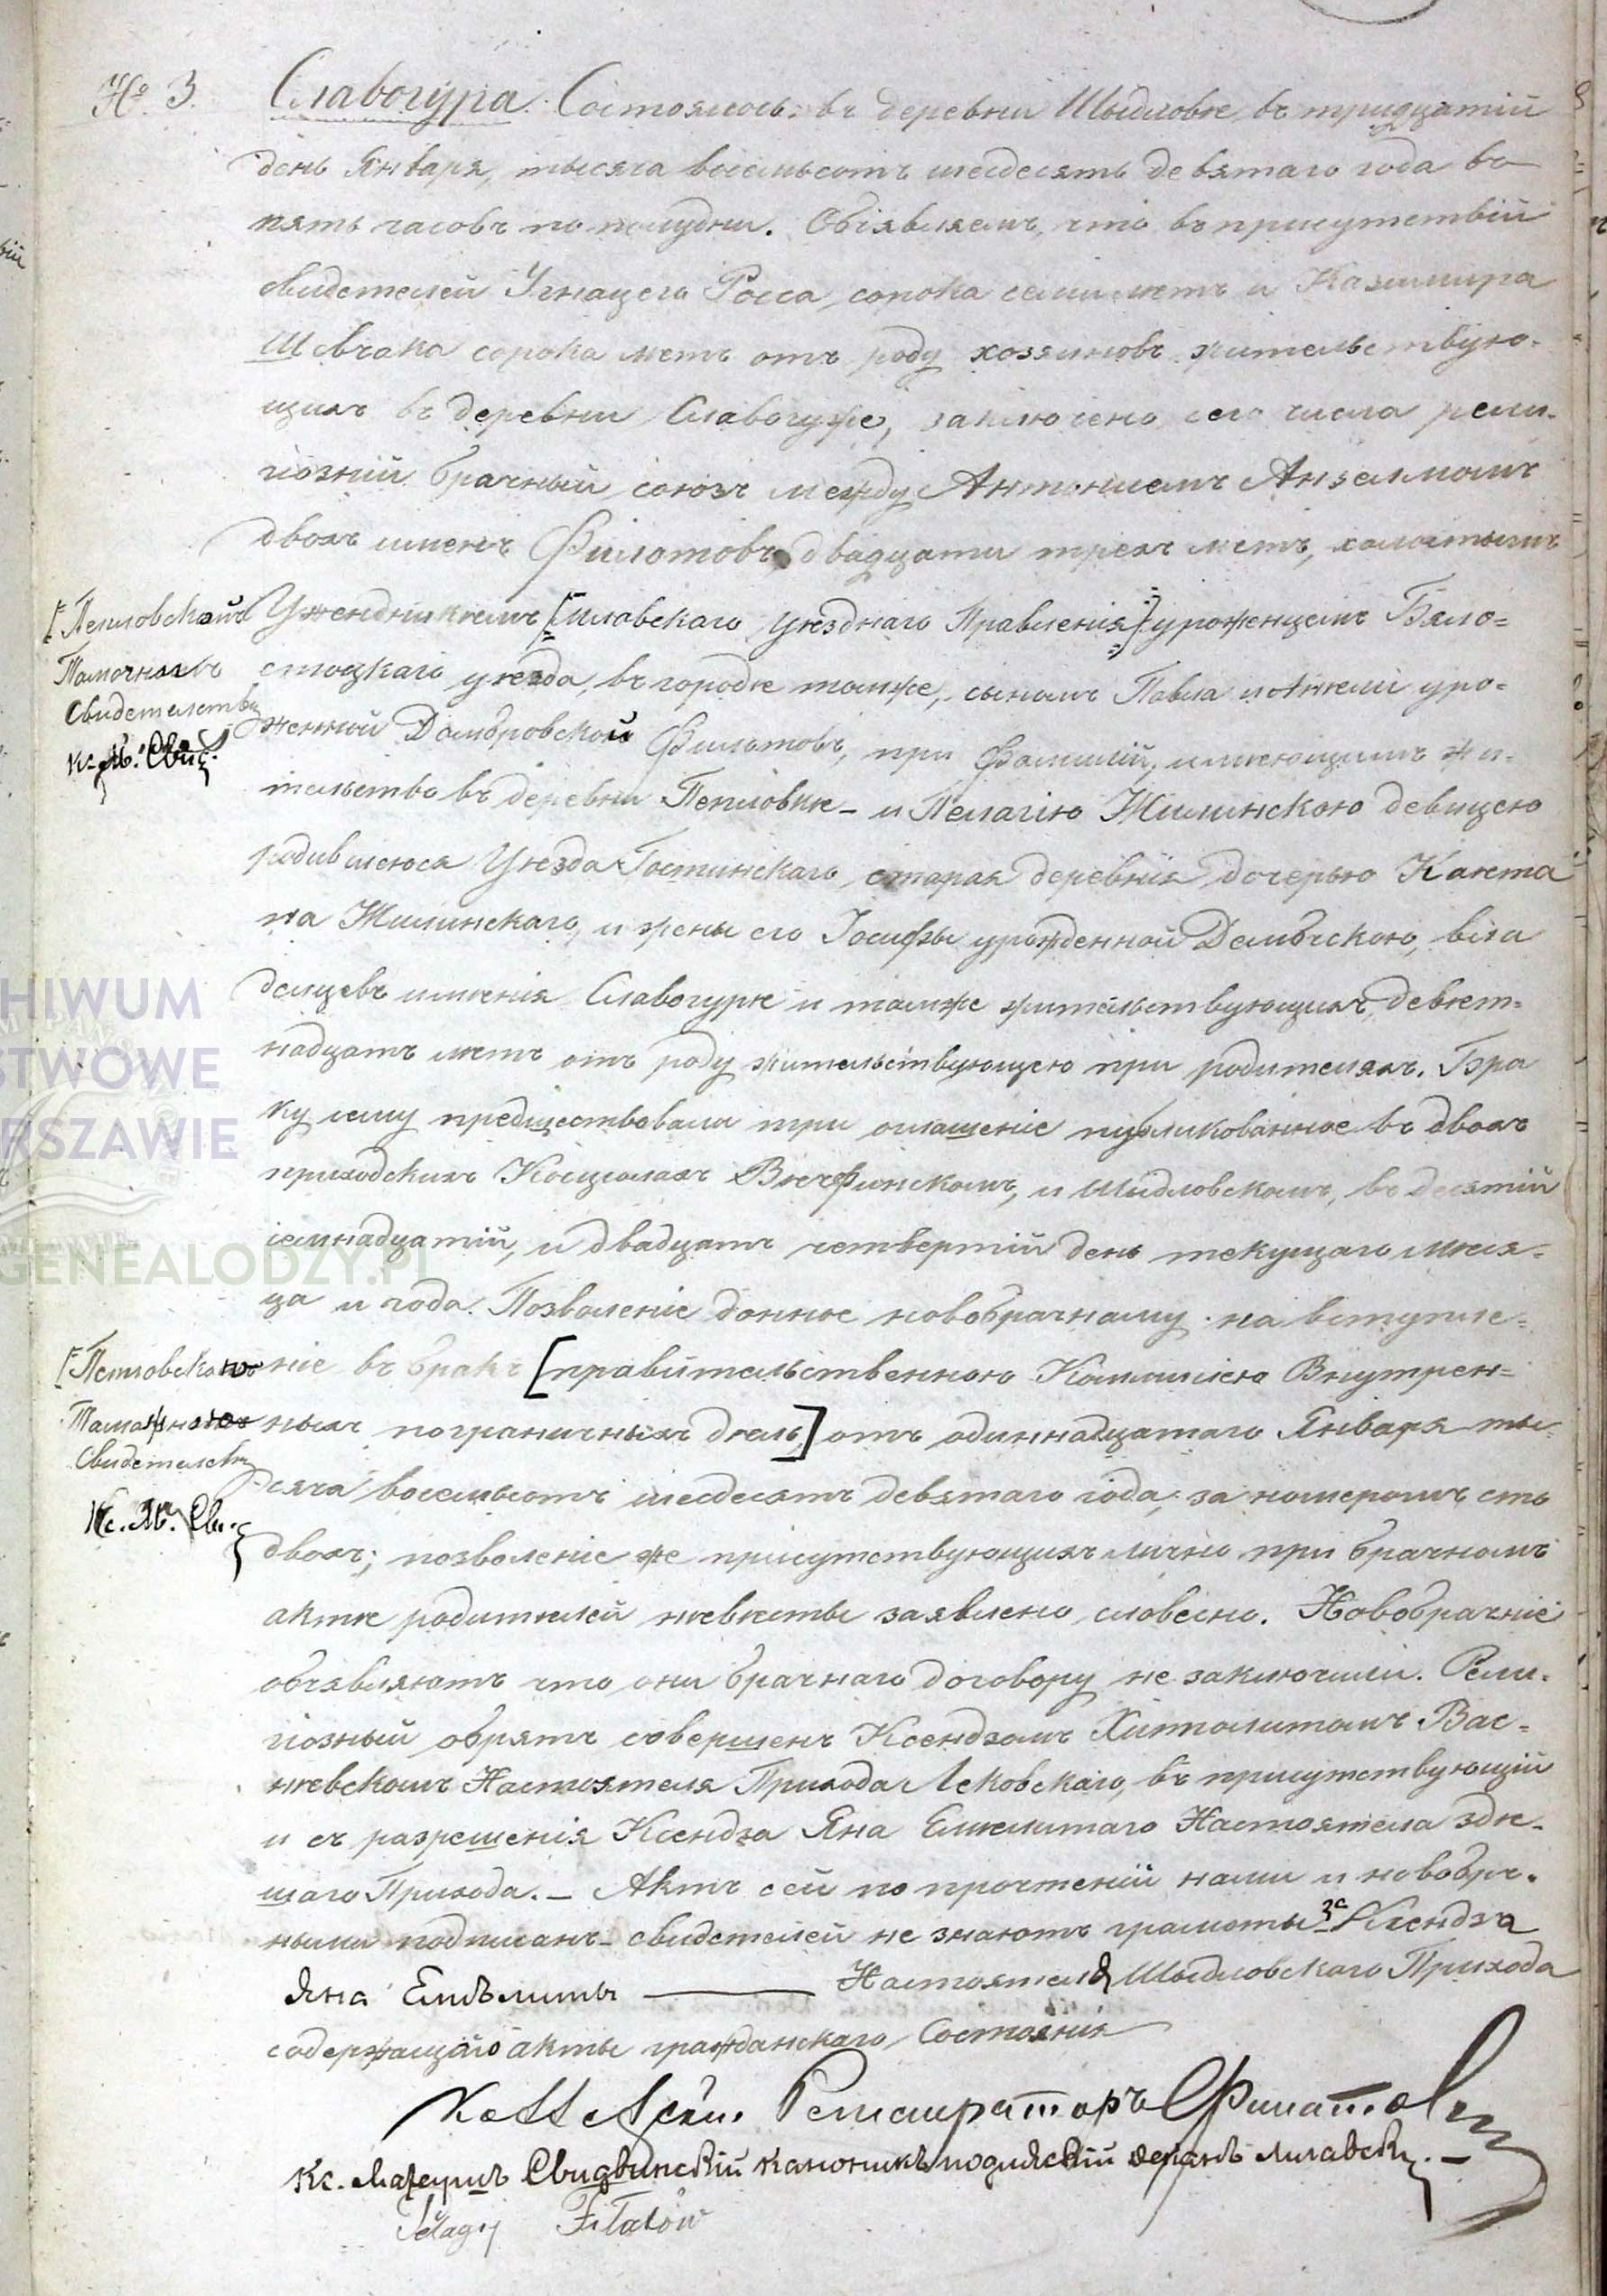 № 3. Славогура. Состоялось: въ деревни Шыдловке, въ тридцатій
день Января, тысяча восемьсотъ шесдесять девятаго года въ
пять часовъ по полудни. Обіявляемъ, что въ присутствій
свидетелей Игнацего Росса, сорока семи летъ и Казимира
Шевчака сорока летъ отъ роду хозяиновъ жительствую-
щихъ въ деревни Славогуже, заключено сего числа рели-
гіозній брачный союзъ между Антоніемъ Анзелмомъ
двохъ именъ Филотовъ, двадцати трехъ летъ, холостымъ
[Пепловской Уржендникемъ [Млавскаго уезднаго Правленія] уроженцемъ Бяло=
Таможнѣ стоцкаго уезда, въ городе томже, сыномъ Павла и Анели уро=
Свидетельств женной Домбровской Филатовъ, при Фамилій, имеющимъ жи-
Кс. М. Сви.
тельство въ деревни Пепловке – и Пелагію Жилинскою девицею
родившеюся Уезда Гостинскаго старая деревнія дочерью Каета
на Жилинскаго, и жены его Іосифы урожденной Дембской, вла
делцевъ именія Славогуре и томже жительствующихъ, девет=
надцать летъ отъ роду жительствующею при родителяхъ. Бра
ку сему предшествовали три оглашеніе публикованное въ двохъ
приходскихъ Косціолахъ Вечфинскомъ, и Шыдловскомъ, въ десятій
семнадцатій, и двадцать четвертій день текущаго меся=
ца и года. Позволеніе данное новобрачному на вступле=
[Пепловско ніе въ бракъ [правительственною Коммиссіею Внутрен=
Таможною ныхъ пограничныхъ делъ,] отъ одиннадцатаго Января ты-
Свидетельств сяча восемьсотъ шесдесятъ девятаго года, за номеромъ сто
Кс. М. Сви.
двохъ; позволеніе же присутствующихъ лично при брачномъ
акте родителей невесты заявлено словесно. Новобрачніе
объявляютъ что они брачнаго договору не заключили. Рели-
гіозный обрятъ совершенъ Ксендзомъ Хипполитомъ Вас=
невскомъ Настоятеля Прихода Лековскаго, въ присутствующій
и съ разрешенія Ксендза Яна Емелитаго Настоятела зде-
шаго Прихода. – Актъ сей по прочтеній нами и новобр-
ными подписанъ – свидетелей не знаютъ грамоты за Ксендза
Яна Емѣлиты — Настоятеля Шыдловскаго Прихода
содержащаго акты гражданскаго Состоянія
Регистраторъ Филатовъ
Кс. Мацеишъ Свидвинскій Каноникъ подляскій деканъ Млавскій. –
Pelagij Filatów